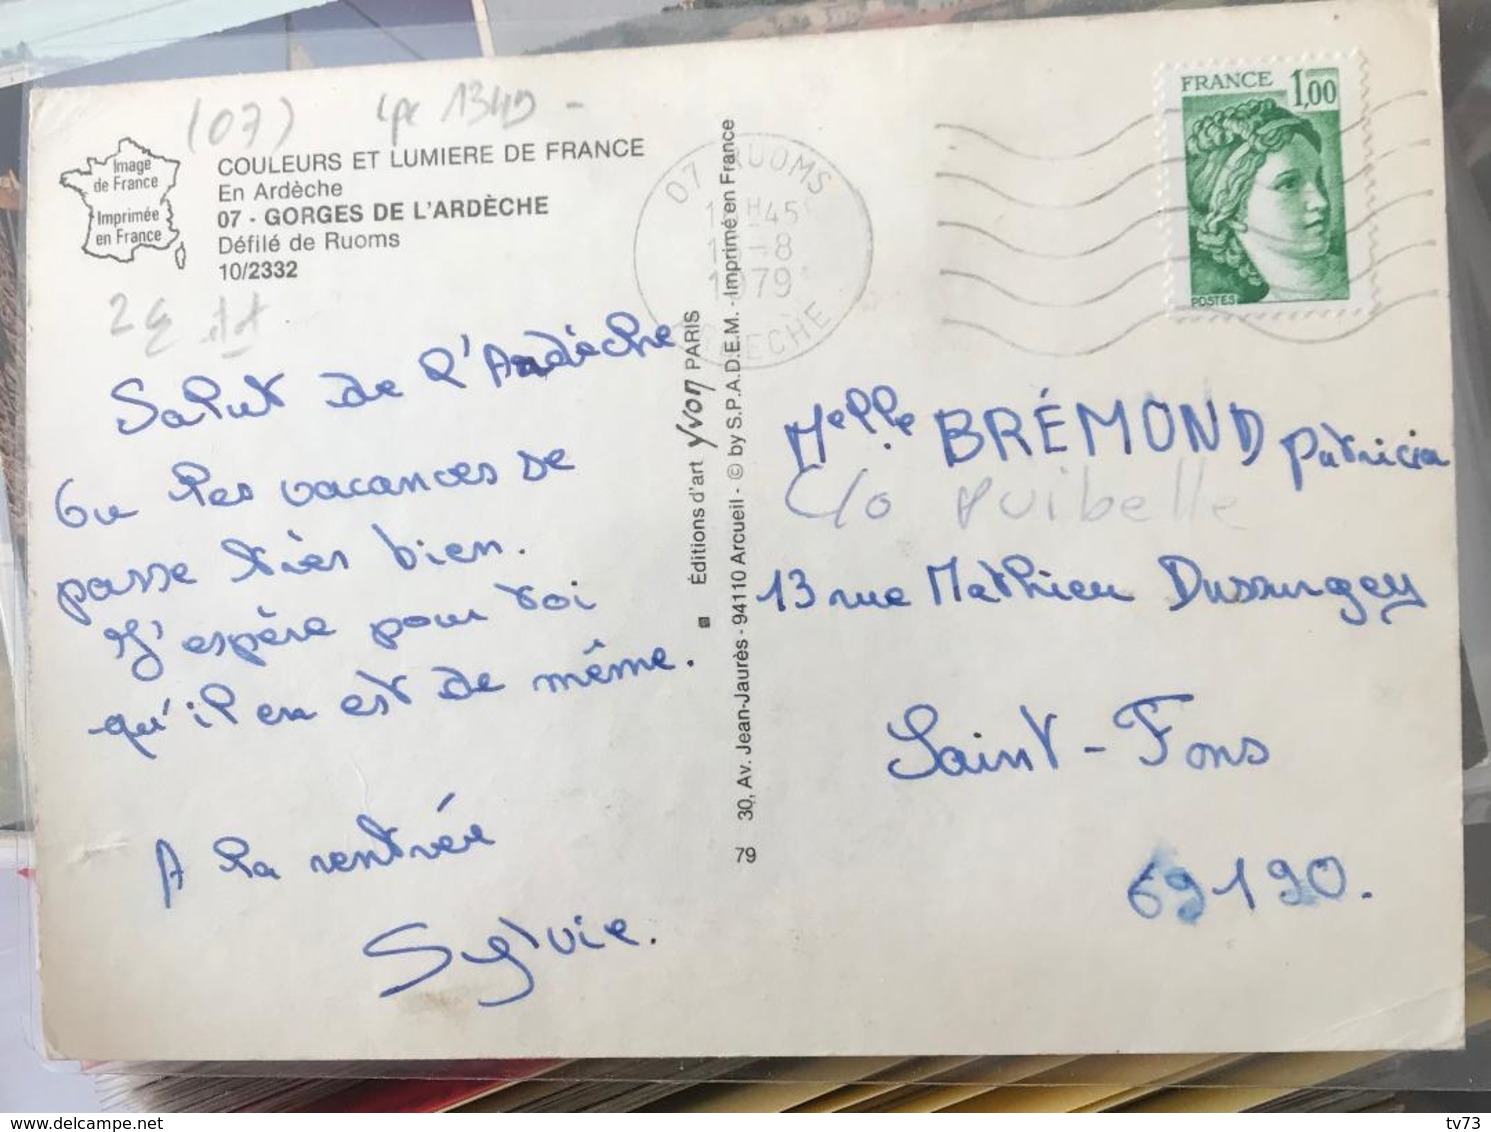 (07) cpe 1349 -
Image
de France
Imprimée
en France
COULEURS ET LUMIERE DE FRANCE
En Ardèche
07 - GORGES DE L'ARDÈCHE
Défilé de Ruoms
10/2332
2 €
Salut de l'Ardèche
Où les vacances se
passe très bien.
J'espère pour toi
qu'il en est de même.
A la rentrée
Sylvie.
Éditions d'art yvon PARIS
30, Av. Jean-Jaurès - 94110 Arcueil - © by S.P.A.D.E.M. - Imprimé en France
79
07 RUOMS
45
-8
1979
ARDECHE
FRANCE 1,00
POSTES
Melle BRÉMOND Patricia
c/o Puibelle
13 rue Mathieu Dussurgey
Saint-Fons
69190.
tv73